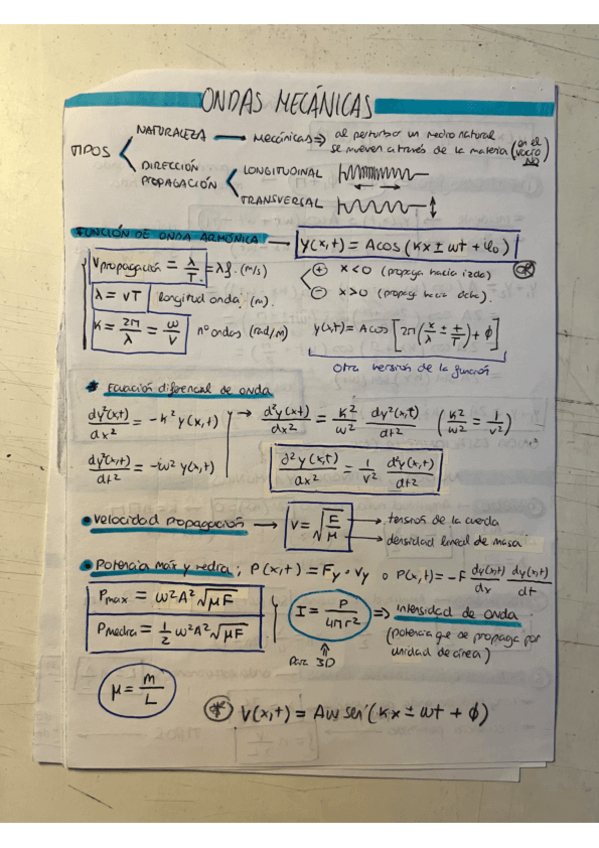 ONDAS MECÁNICAS
TIPOS
NATURALEZA → MECÁNICAS ⇒ al perturbar un medio natural
se mueven a través de la materia (en el vacío NO)
DIRECCIÓN PROPAGACIÓN
LONGITUDINAL
TRANSVERSAL
FUNCIÓN DE ONDA ARMÓNICA → y(x,t) = A cos(kx ± ωt + φ₀)
V propagación = λ/T = λf. (m/s)
⊕ x<0 (propaga hacia izda)
⊖ x>0 (propag hacia dcha).
λ = vT longitud onda. (m).
k = 2π/λ = ω/v nº ondas (rad/m)
y(x,t) = A cos [2π(x/λ ± t/T) + φ]
Otra versión de la función
* Ecuación diferencial de onda
dy²(x,t)/dx² = -k² y(x,t)
dy²(x,t)/dt² = -ω² y(x,t)
→ d²y(x,t)/dx² = k²/ω² dy²(x,t)/dt² (k²/ω² = 1/v²)
∂²y(x,t)/∂x² = 1/v² d²y(x,t)/dt²
• Velocidad propagación → v = √(F/μ)
→ tensión de la cuerda
→ densidad lineal de masa
• Potencia máx y media; P(x,t) = Fy · vy o P(x,t) = -F dy(x,t)/dx dy(x,t)/dt
Pmax = ω²A²√μF
Pmedia = 1/2 ω²A²√μF
I = P/4πr² ⇒ intensidad de onda
(potencia que se propaga por
unidad de área)
⇑
Para 3D
μ = m/L
⊛ V(x,t) = Aω sen(kx ± ωt + φ)